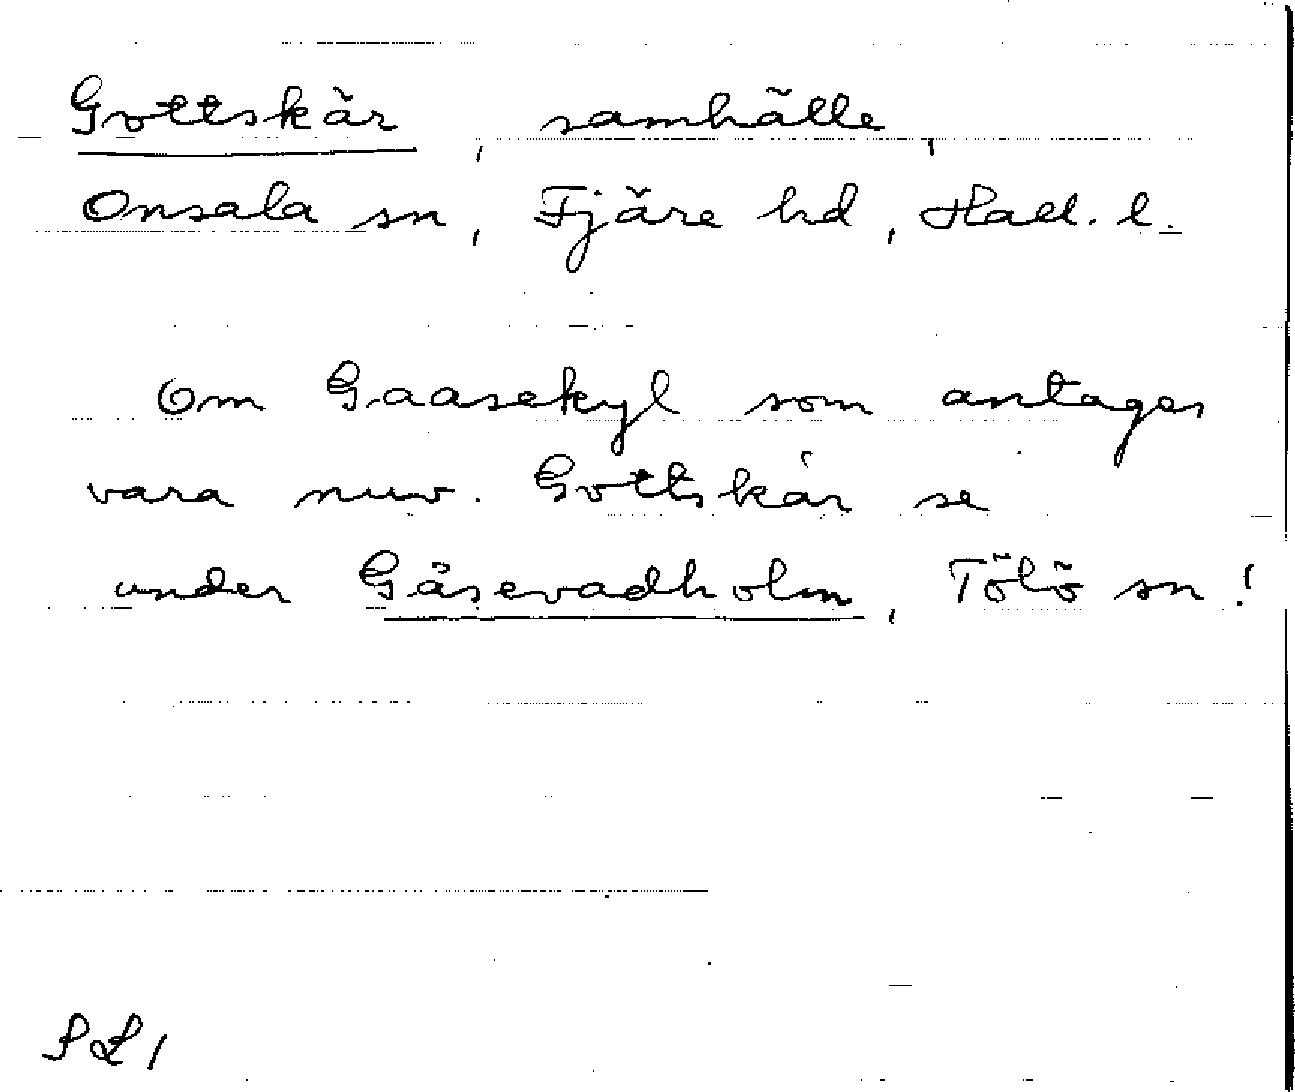 Gottskär, samhälle,
Onsala sn, Fjäre hd, Hall. l.
Om Gaasekyl som antages
vara nuv. Gottskär se
under Gåsevadholm, Tölö sn!